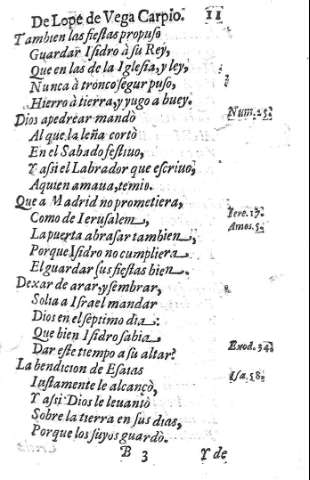 De Lope de Vega Carpio. 11
Tambien las fiestas propuso
Guardar Isidro à su Rey,
Que en las de la Iglesia, y ley,
Nunca à tronco segur puso,
Hierro à tierra, y yugo a buey.
Dios apedrear mandò Num. 15.
Al que la leña cortò
En el Sabado festiuo,
Y assi el Labrador que escriuo,
A quien amaua, temio.
Que a Madrid no prometiera, Iere. 17.
Como de Ierusalem, Amos. 5.
La puerta abrasar tambien,
Porque Isidro no cumpliera
El guardar sus fiestas bien.
Dexar de arar, y sembrar,
Solia a Israel mandar
Dios en el septimo dia:
Que bien Isidro sabia
Dar este tiempo a su altar? Exod. 34.
La bendicion de Esaias Isa. 58.
Iustamente le alcançò,
Y assi Dios le leuantò
Sobre la tierra en sus dias,
Porque los suyos guardò.
B 3 Y de